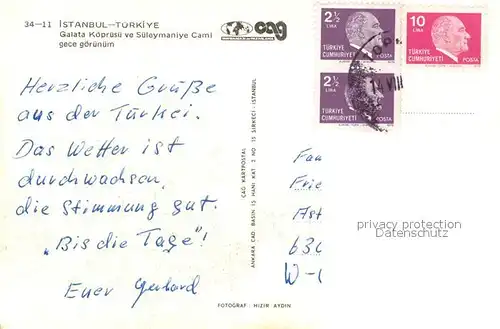 34-11 İSTANBUL-TÜRKİYE
Galata Köprüsü ve Süleymaniye Cami
gece görünüm
cag
Herzliche Grüße
aus der Türkei.
Das Wetter ist
durchwachsen,
die Stimmung gut.
„Bis die Tage"!
Euer Gerhard
ÇAĞ KARTPOSTAL
ANKARA CAD. BASIN 15 HANI KAT 2 NO. 15 SİRKECİ-İSTANBUL
FOTOGRAF: HIZIR AYDIN
2½
LİRA
TÜRKİYE
CUMHURİYETİ
POSTA
10
LİRA
TÜRKİYE
CUMHURİYETİ
POSTA
2½
LİRA
TÜRKİYE
CUMHURİYETİ
VIII
Fam
Frie
Ast
privacy protection
Datenschutz
630
W-